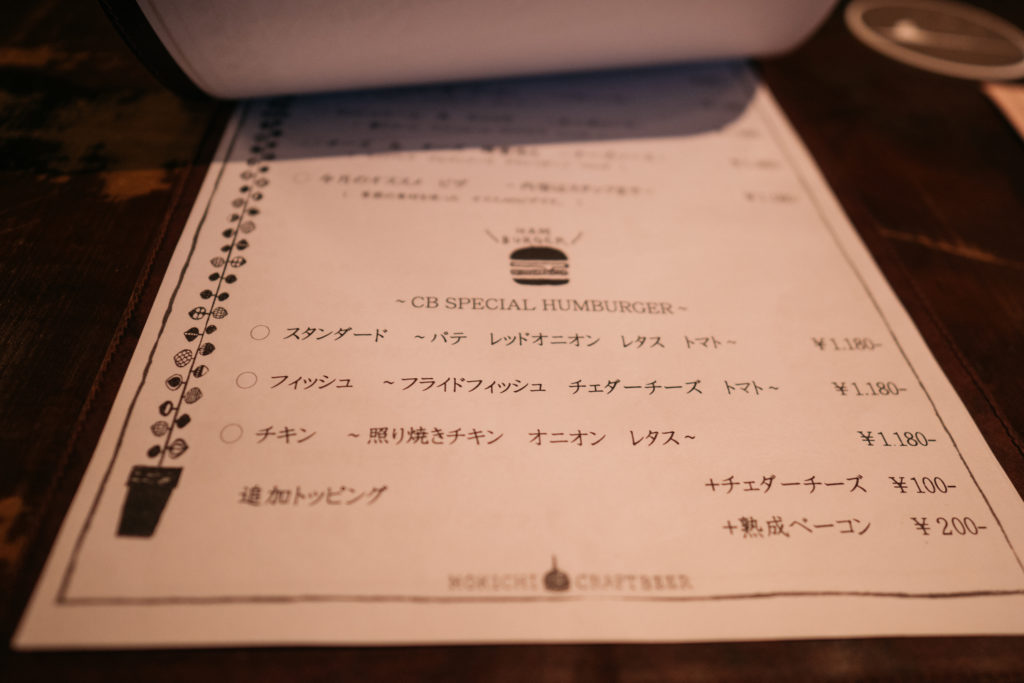 ○ 今月のオススメ ピザ ~内容はスタッフまで~
HAM
BURGER
~CB SPECIAL HUMBURGER~
○ スタンダード ~パテ レッドオニオン レタス トマト~ ¥1.180-
○ フィッシュ ~フライドフィッシュ チェダーチーズ トマト~ ¥1.180-
○ チキン ~照り焼きチキン オニオン レタス~ ¥1.180-
追加トッピング +チェダーチーズ ¥100-
+熟成ベーコン ¥200-
CRAFTBEER